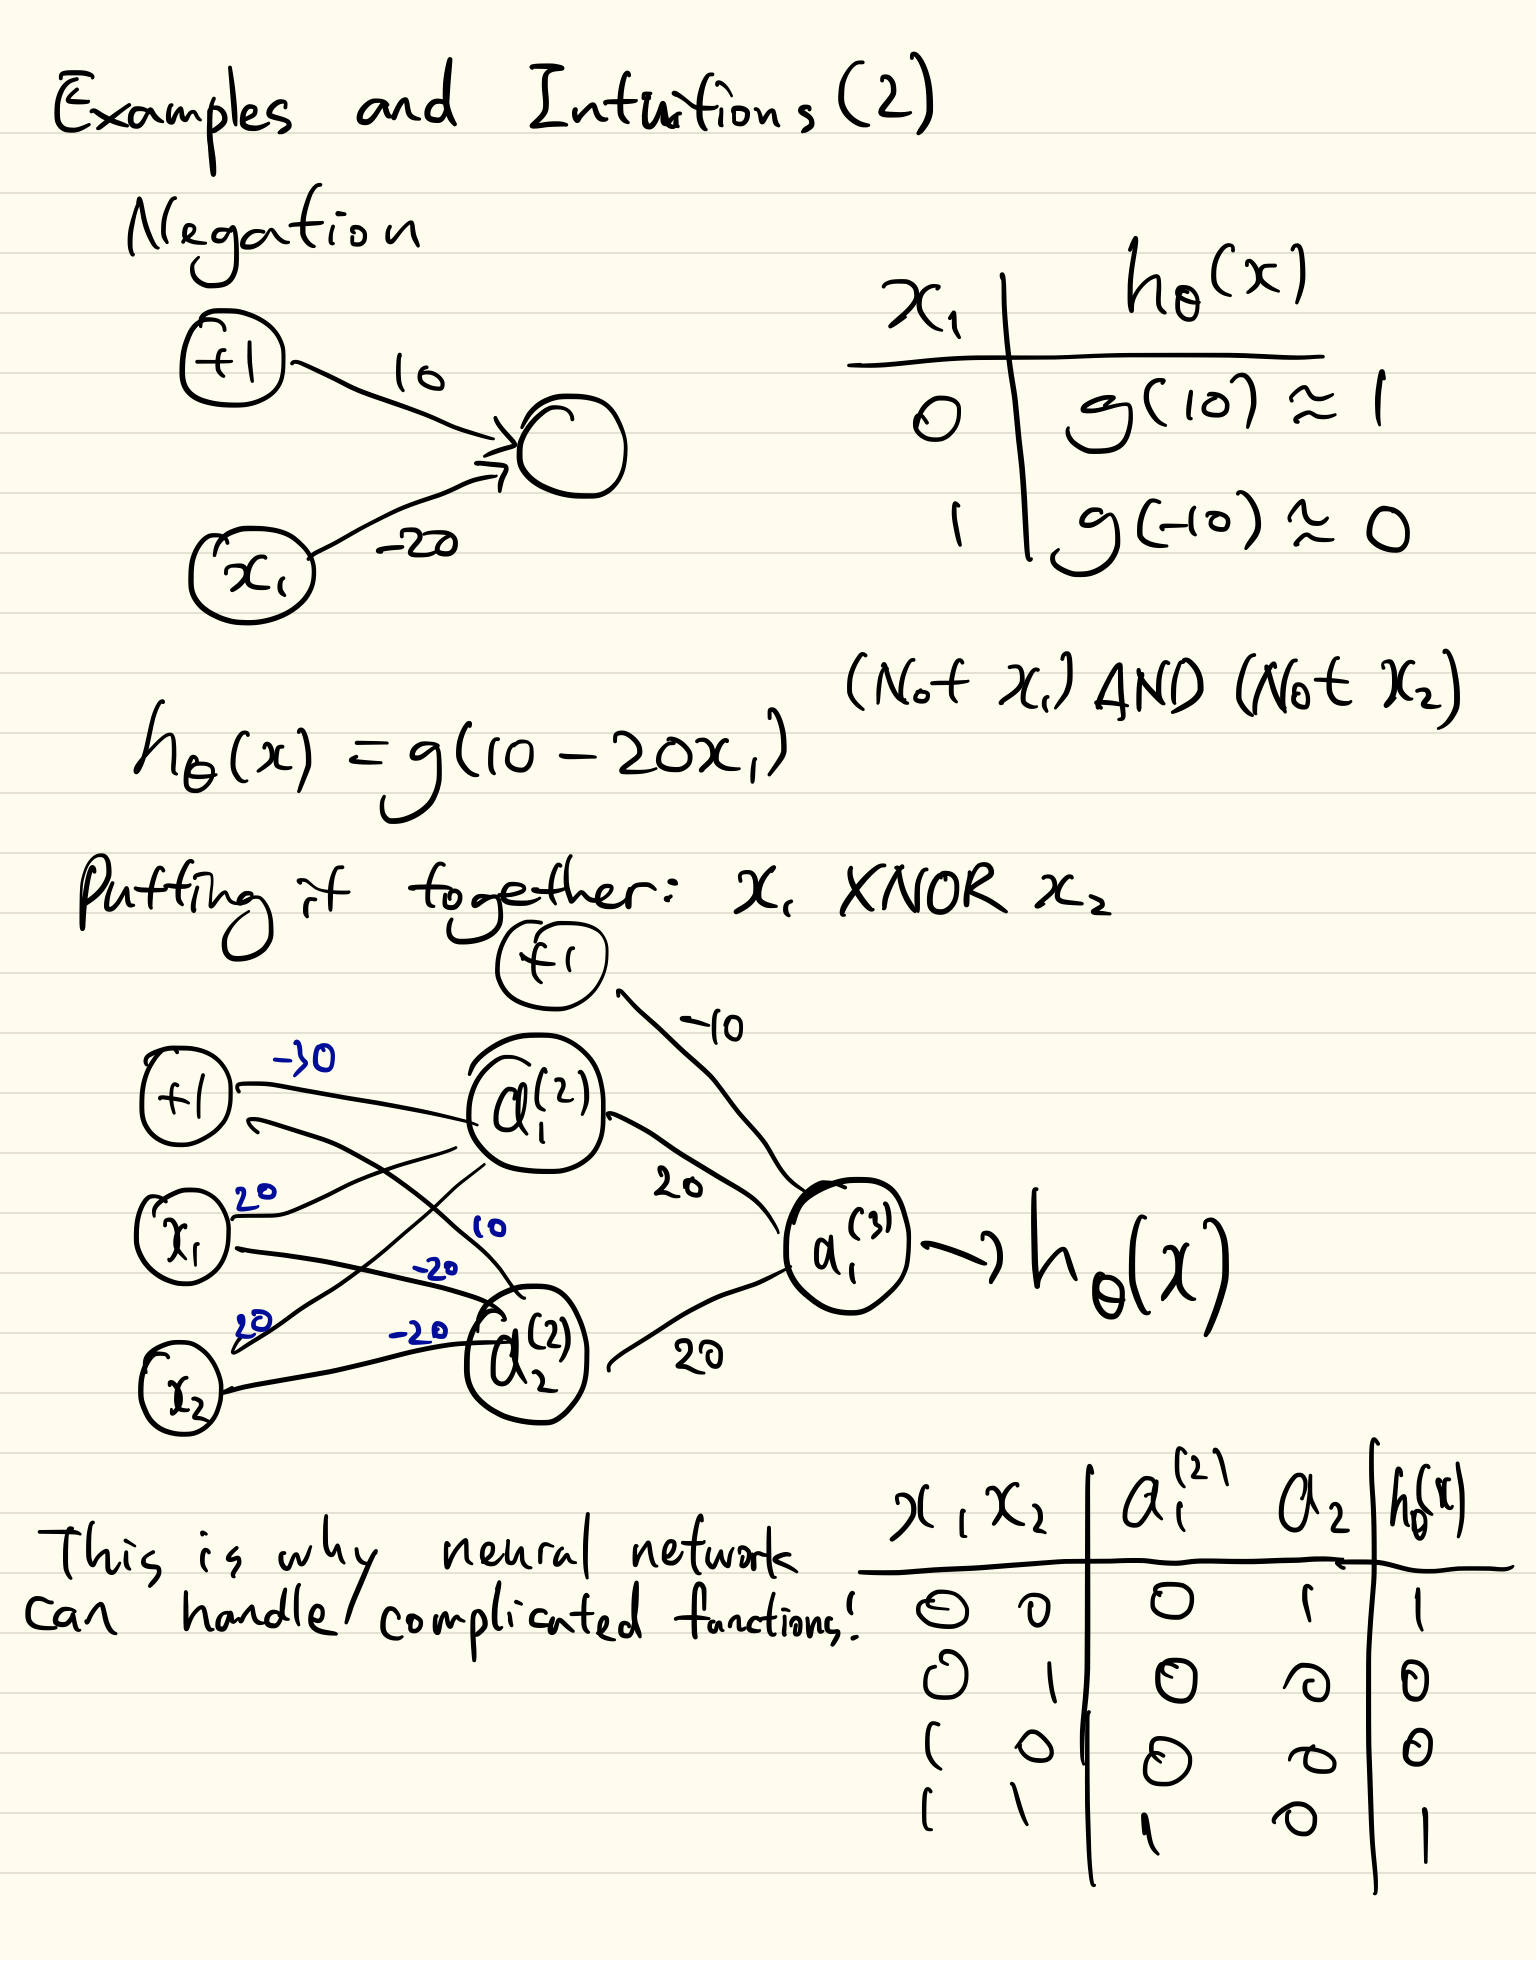 Examples and Intuitions (2)
Negation
+1
10
x₁
-20
x₁ | hθ(x)
0 | g(10) ≈ 1
1 | g(-10) ≈ 0
(Not x₁) AND (Not x₂)
hθ(x) = g(10 - 20x₁)
Putting it together: x₁ XNOR x₂
+1
-10
+1
-30
a₁⁽²⁾
x₁
20
10
20
-20
a₁⁽³⁾ → hθ(x)
20
-20
20
x₂
a₂⁽²⁾
This is why neural network
can handle complicated functions!
x₁ x₂ | a₁⁽²⁾ a₂ | hθ(x)
0 0 | 0 1 | 1
0 1 | 0 0 | 0
1 0 | 0 0 | 0
1 1 | 1 0 | 1